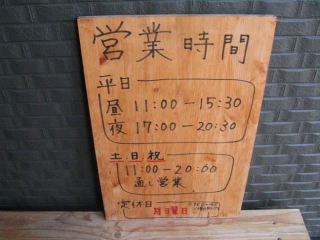 営業時間
平日
昼 11:00-15:30
夜 17:00-20:30
土.日.祝
11:00-20:00
通し営業
定休日
月曜日